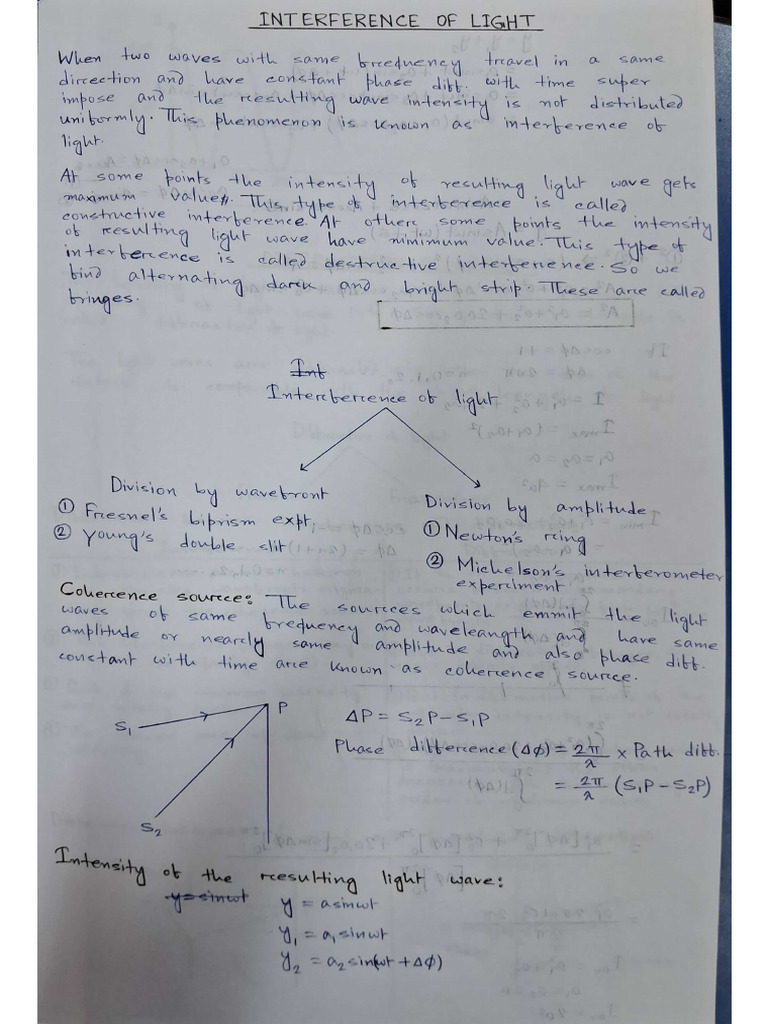 INTERFERENCE OF LIGHT
When two waves with same freequency travel in a same
direction and have constant phase diff. with time super
impose and the resulting wave intensity is not distributed
uniformly. This phenomenon is known as interference of
light.
At some points the intensity of resulting light wave gets
maximum value. This type of interference is called
constructive interference. At others some points the intensity
of resulting light wave have minimum value. This type of
interference is called destructive interference. So we
find alternating dark and bright strip. These are called
fringes.
Int
Interference of light
Division by wavefront
① Fresnel's biprism expt.
② Young's double slit
Division by amplitude
① Newton's ring
② Michelson's interferometer
experiment
Coherence source: The sources which emmit the light
waves of same frequency and waveleangth and have same
amplitude or nearly same amplitude and also phase diff.
constant with time are known as coherence source.
S₁
P
S₂
ΔP = S₂P - S₁P
Phase difference (Δϕ) = 2π/λ × Path diff.
= 2π/λ (S₁P - S₂P)
Intensity of the resulting light wave:
y = sinωt
y = a sinωt
y₁ = a₁ sinωt
y₂ = a₂ sin(ωt + Δϕ)